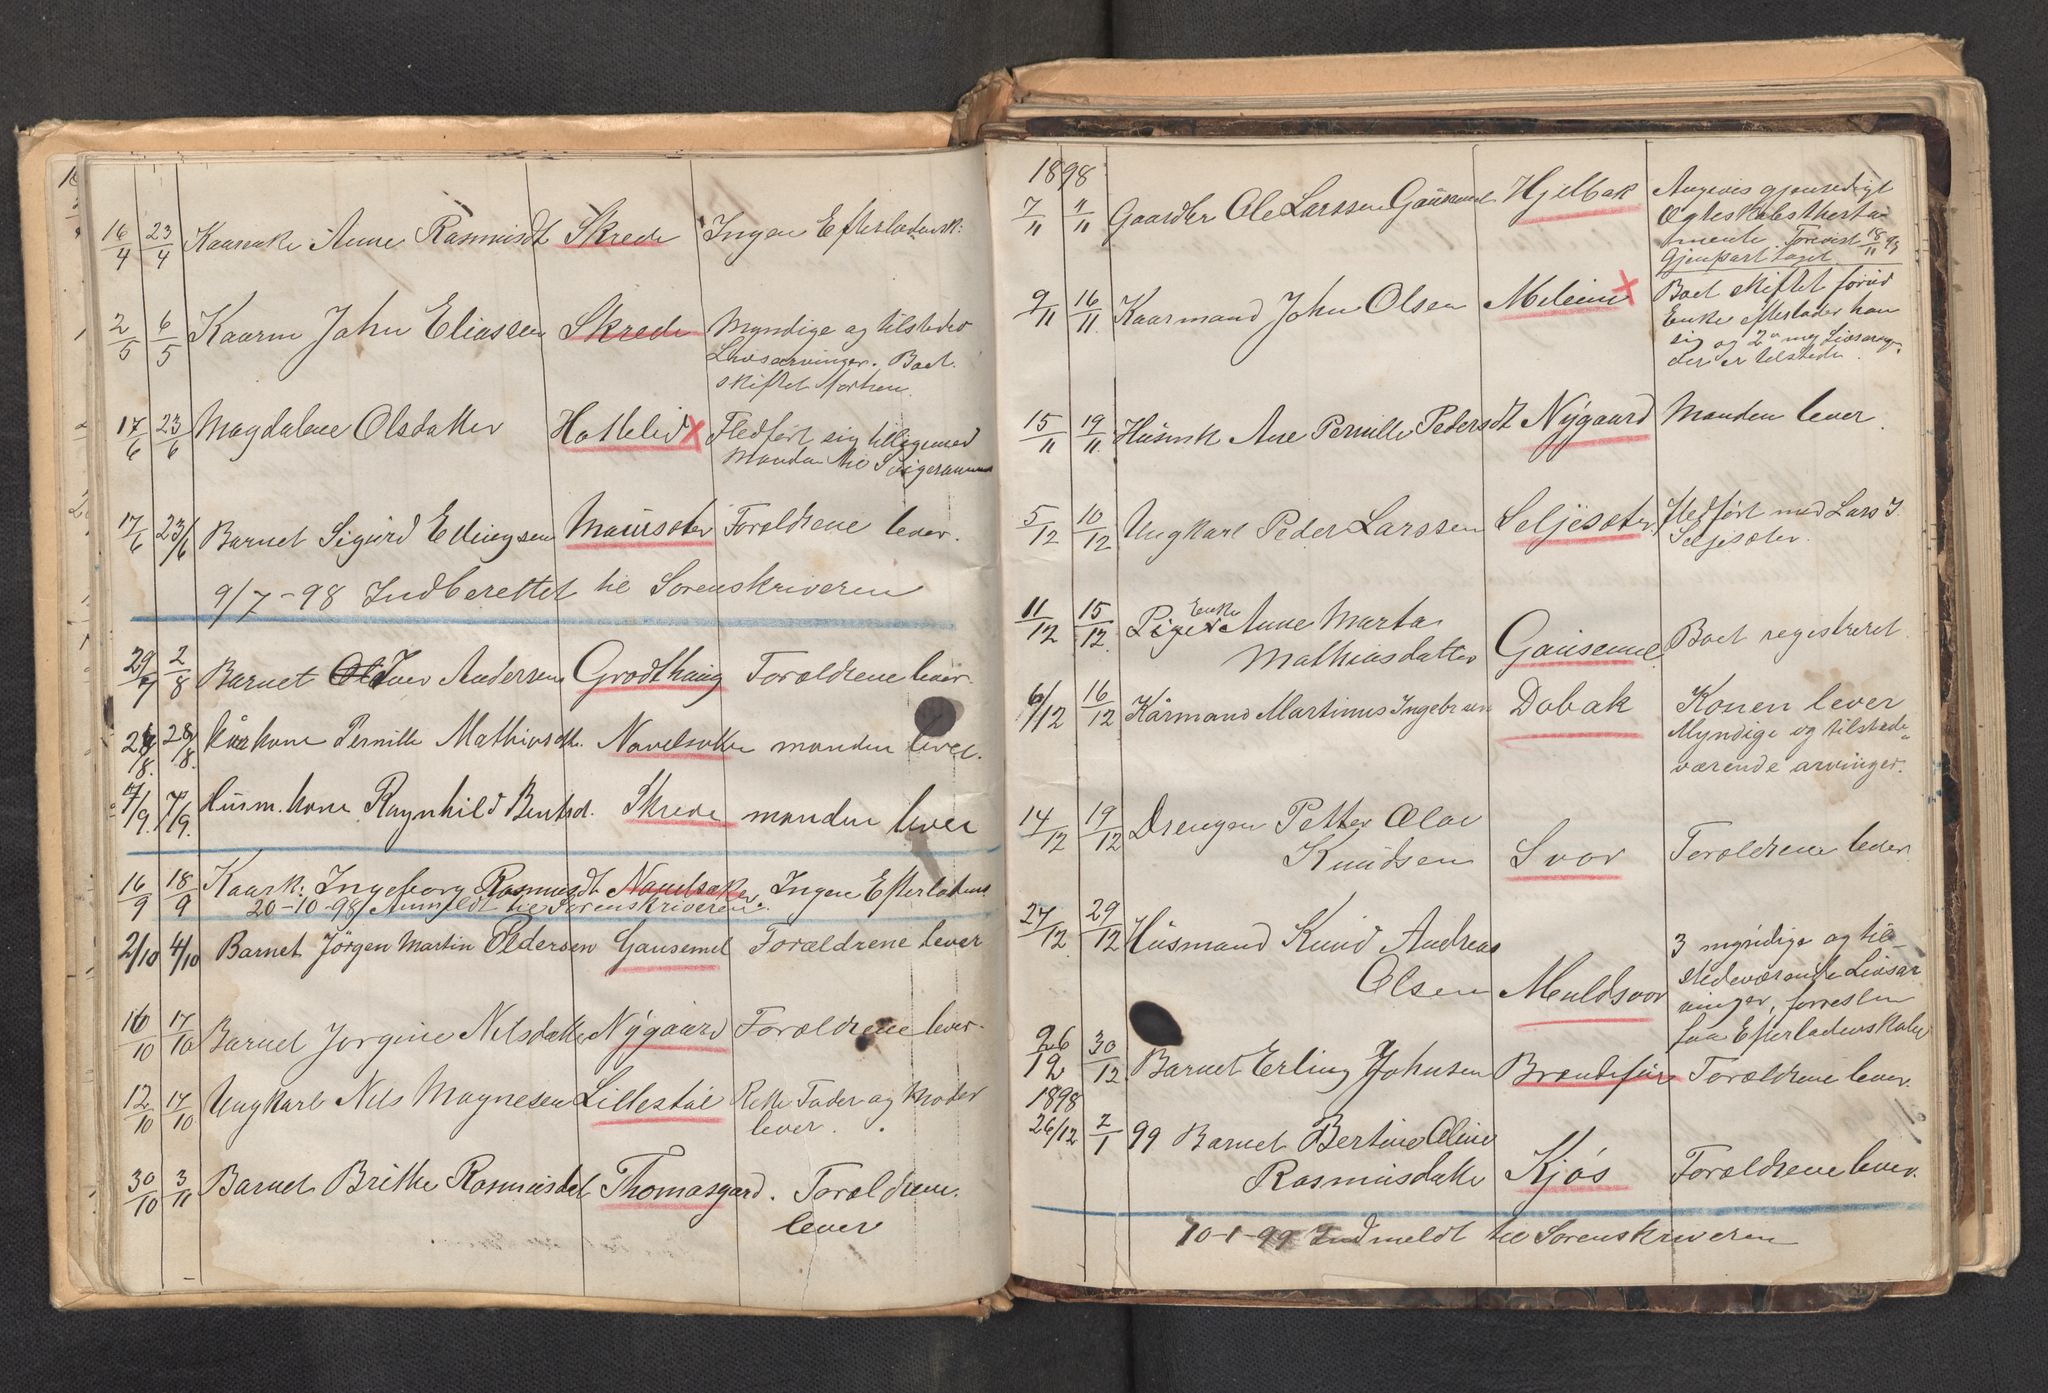 16/4 23/4 Kaarenke Anne Rasmusdt Skrede Ingen Efterladensk:
2/5 6/5 Kaarm John Eliassen Skrede Myndige og tilstedev
Livsarvinger. Boet
skiftet forhen.
17/6 23/6 Magdalene Olsdatter Hattelid x Fledført sig tilligemed
Manden til Svigersønnen
17/6 23/6 Barnet Sigurd Ellingsen Maursæter Forældrene lever.
9/7-98 Indberettet til Sorenskriveren
29/7 2/8 Barnet Iver Andersen Grodthaug Forældrene lever.
28/8. Kårkone Pernille Mathiasdt. Navelsaker manden lever.
4/9. 7/9. Husm. kone Ragnhild Bentsd. Skrede manden lever
16/9 18/9 Kaark: Ingeborg Rasmusdt Navelsaker. Ingen Efterladens
20-10-98 Anmeldt til Sorenskriveren.
2/10 4/10 Barnet Jörgen Martin Pedersen Gausemel Forældrene lever
10/10 17/10 Barnet Jorgine Nilsdatter Nygaard Forældrene lever.
12/10 17/10 Ungkarl Nils Magnesen Lillestøl Rette Fader og Moder
lever.
30/10 3/11 Barnet Brithe Rasmusdat Thomasgard. Forældrene
lever
1898
7/11 11/11 Gaardbr Ole Larssen Gausemel Hjelbak Angivis gjensidigt
Egteskabstesta
mente. Forevist 18/11 98
Gjenpart taget.
9/11 16/11. Kaarmand John Olsen Meleim x Boet skiftet forud
Enke efterlader han
sig og 2 myg Livsarvin
der er tilstede.
15/11 19/11. Husmk Ane Pernille Pedersdt Nygaard Manden lever.
5/12 10/12 Ungkarl Peder Larssen Seljesæter Fledført med Lars J.
Seljesæter.
11/12 15/12. Enke Anne Marta
Mathiasdatter Gausemel Boet registreret.
6/12 16/12 Kårmand Martinus Ingebr Dobak Konen lever
Myndige og tilstede-
værende arvinger.
14/12 19/12 Drengen Petter Olai
Knudsen Svor Forældrene lever.
27/12 29/12 Husmand Knud Andreas
Olsen Muldsvor 3 myndige og til-
stedeværende Livsar
vinger, forresten
faa Efterladenskaber
26/12 30/12 Barnet Erling Johnsen Brandefur Forældrene lever.
1898
26/12 2/1 99 Barnet Bertine Oline
Rasmusdatter Kjøs Forældrene lever.
10-1-99 Indmeldt til Sorenskriveren